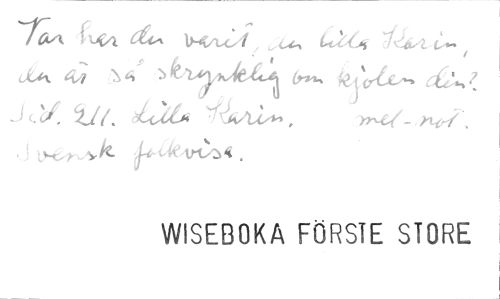 Var har du varit, du lilla Karin,
du är så skrynklig om kjolen din?
Sid. 211. Lilla Karin. mel-not.
Svensk folkvisa.
WISEBOKA FÖRSTE STORE